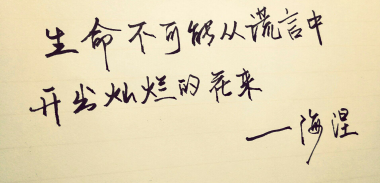 生命不可能从谎言中
开出灿烂的花来
—海涅